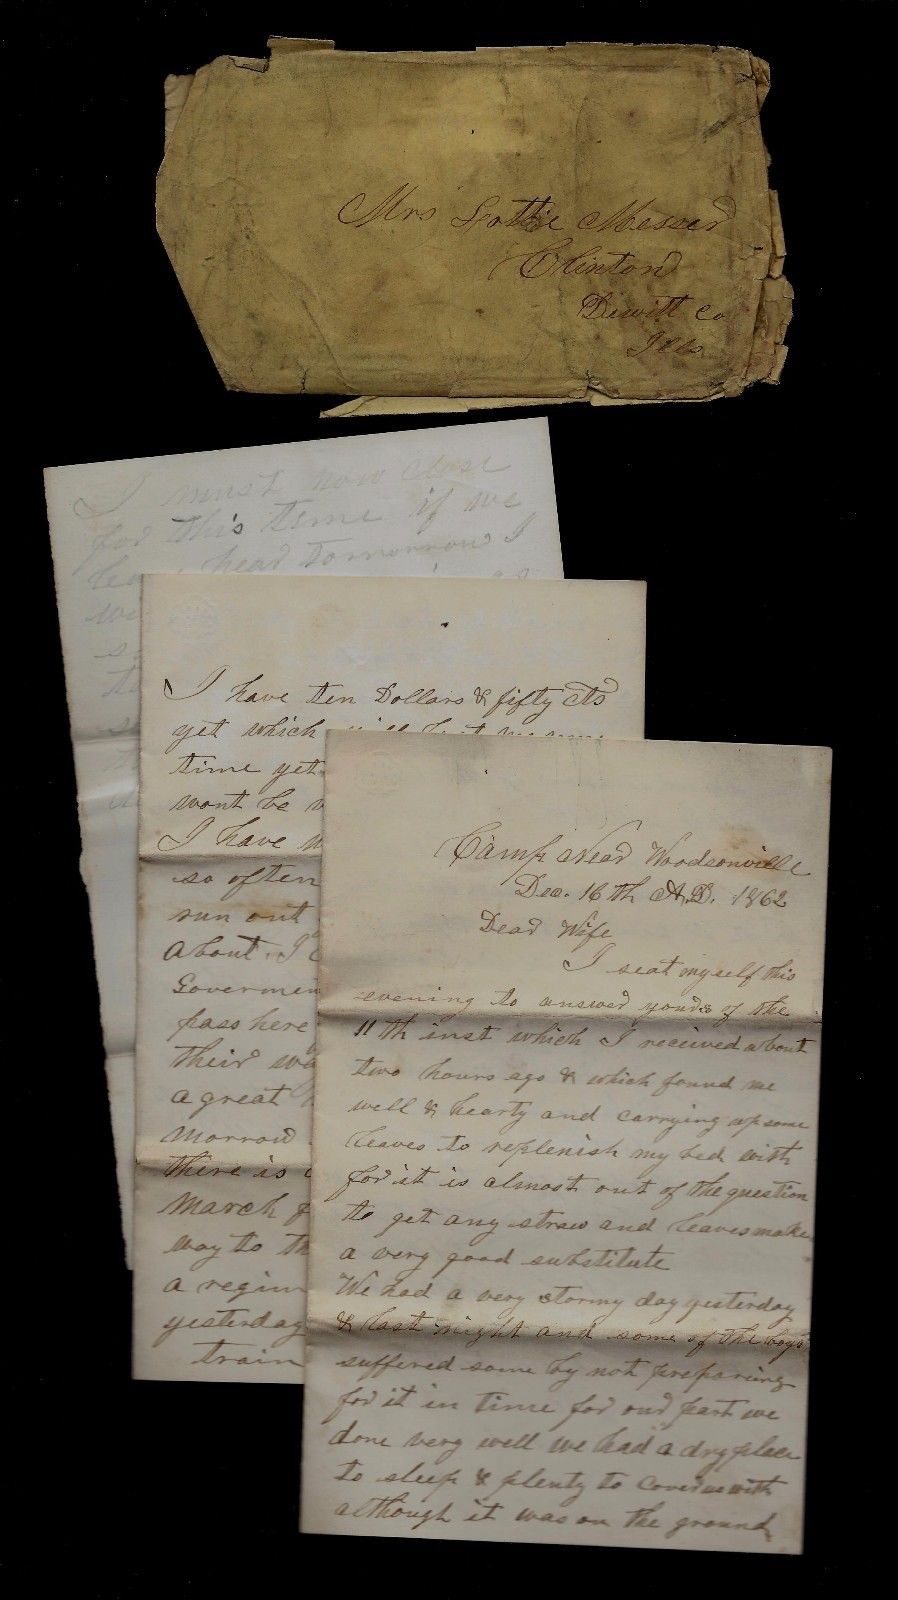 Mrs Lottie Messer
Clinton
Dewitt Co
Ills
I must now close
for this time if we
head tomorrow I
I have ten Dollars & fifty cts
yet which
time yet
wont be
I have
so often
run out
About. I
Govermen
pass here
their
a great
morrow
there is
March
way to
a regim
yesterday
train
Camp Near Woodsonville
Dec. 16th A.D. 1862
Dear Wife
I seat myself this
evening to answer yours of the
11th inst which I received about
two hours ago & which found me
well & hearty and carrying up some
leaves to replenish my bed with
for it is almost out of the question
to get any straw and leaves make
a very good substitute
We had a very stormy day yesterday
& last night and some of the boys
suffered some by not prepareing
for it in time for our part we
done very well we had a dry place
to sleep & plenty to cover us with
although it was on the ground